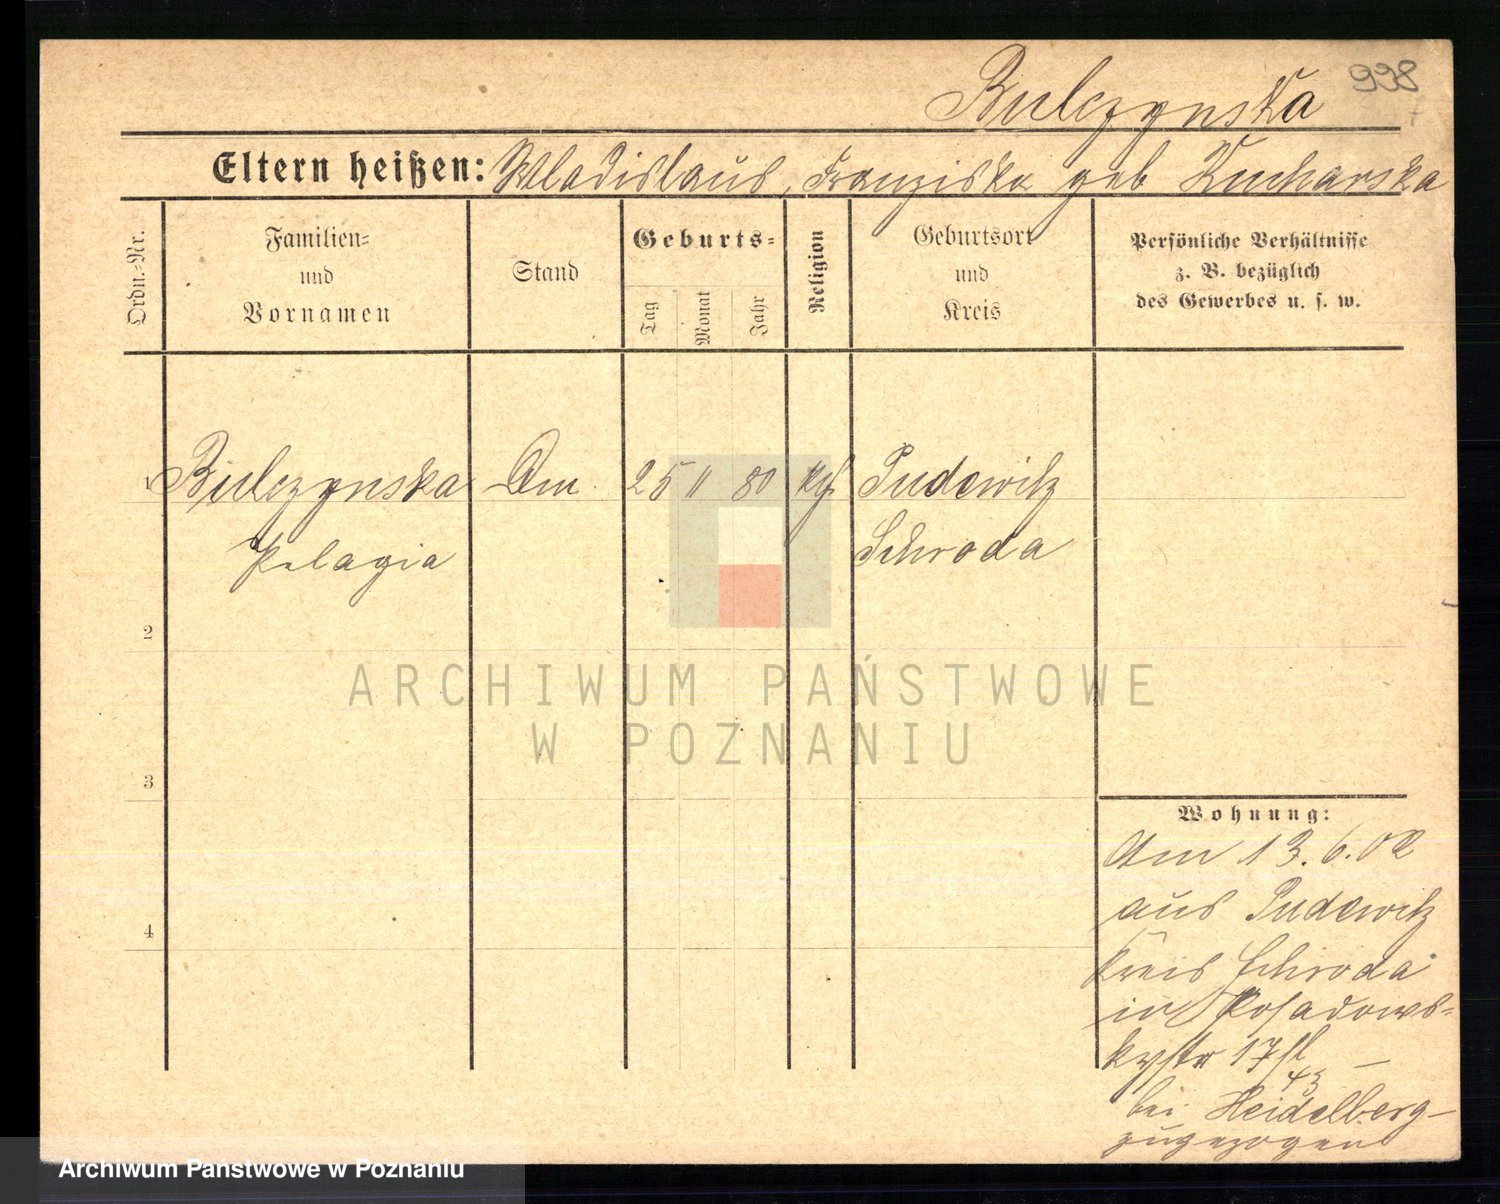 998
Bulczynska
Eltern heißen: Wladislaus, Franziska geb Kucharska
Ordn.-Nr.
Familien- und Vornamen
Stand
Geburts-
Tag
Monat
Jahr
Religion
Geburtsort und Kreis
Persönliche Verhältnisse z. B. bezüglich des Gewerbes u. s. w.
1 Bulczynska 25 11 80 kth Pudewitz
Pelagia Schroda
2
3
4
Wohnung:
Am 13.6.02
aus Pudewitz
Kreis Schroda
in Posadows-
kystr 17
43
bei Heidelberg
zugezogen
ARCHIWUM PAŃSTWOWE
W POZNANIU
Archiwum Państwowe w Poznaniu